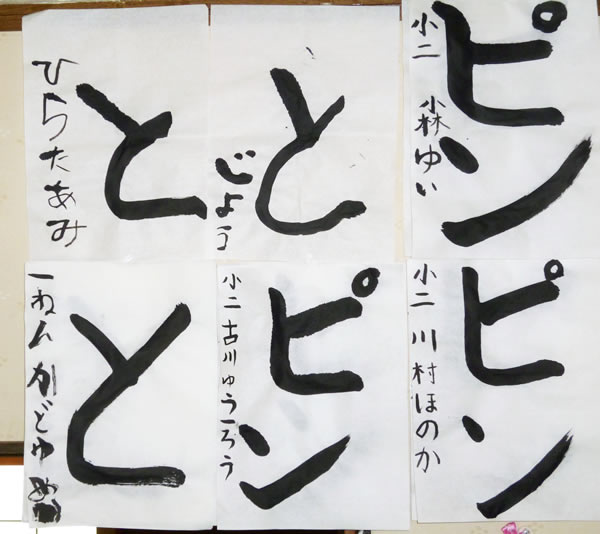 ピン
小二 小林ゆい
と
じょう
と
ひらたあみ
ピン
小二 川村ほのか
ピン
小二 古川ゆう一ろう
と
一ねん かどゆめ